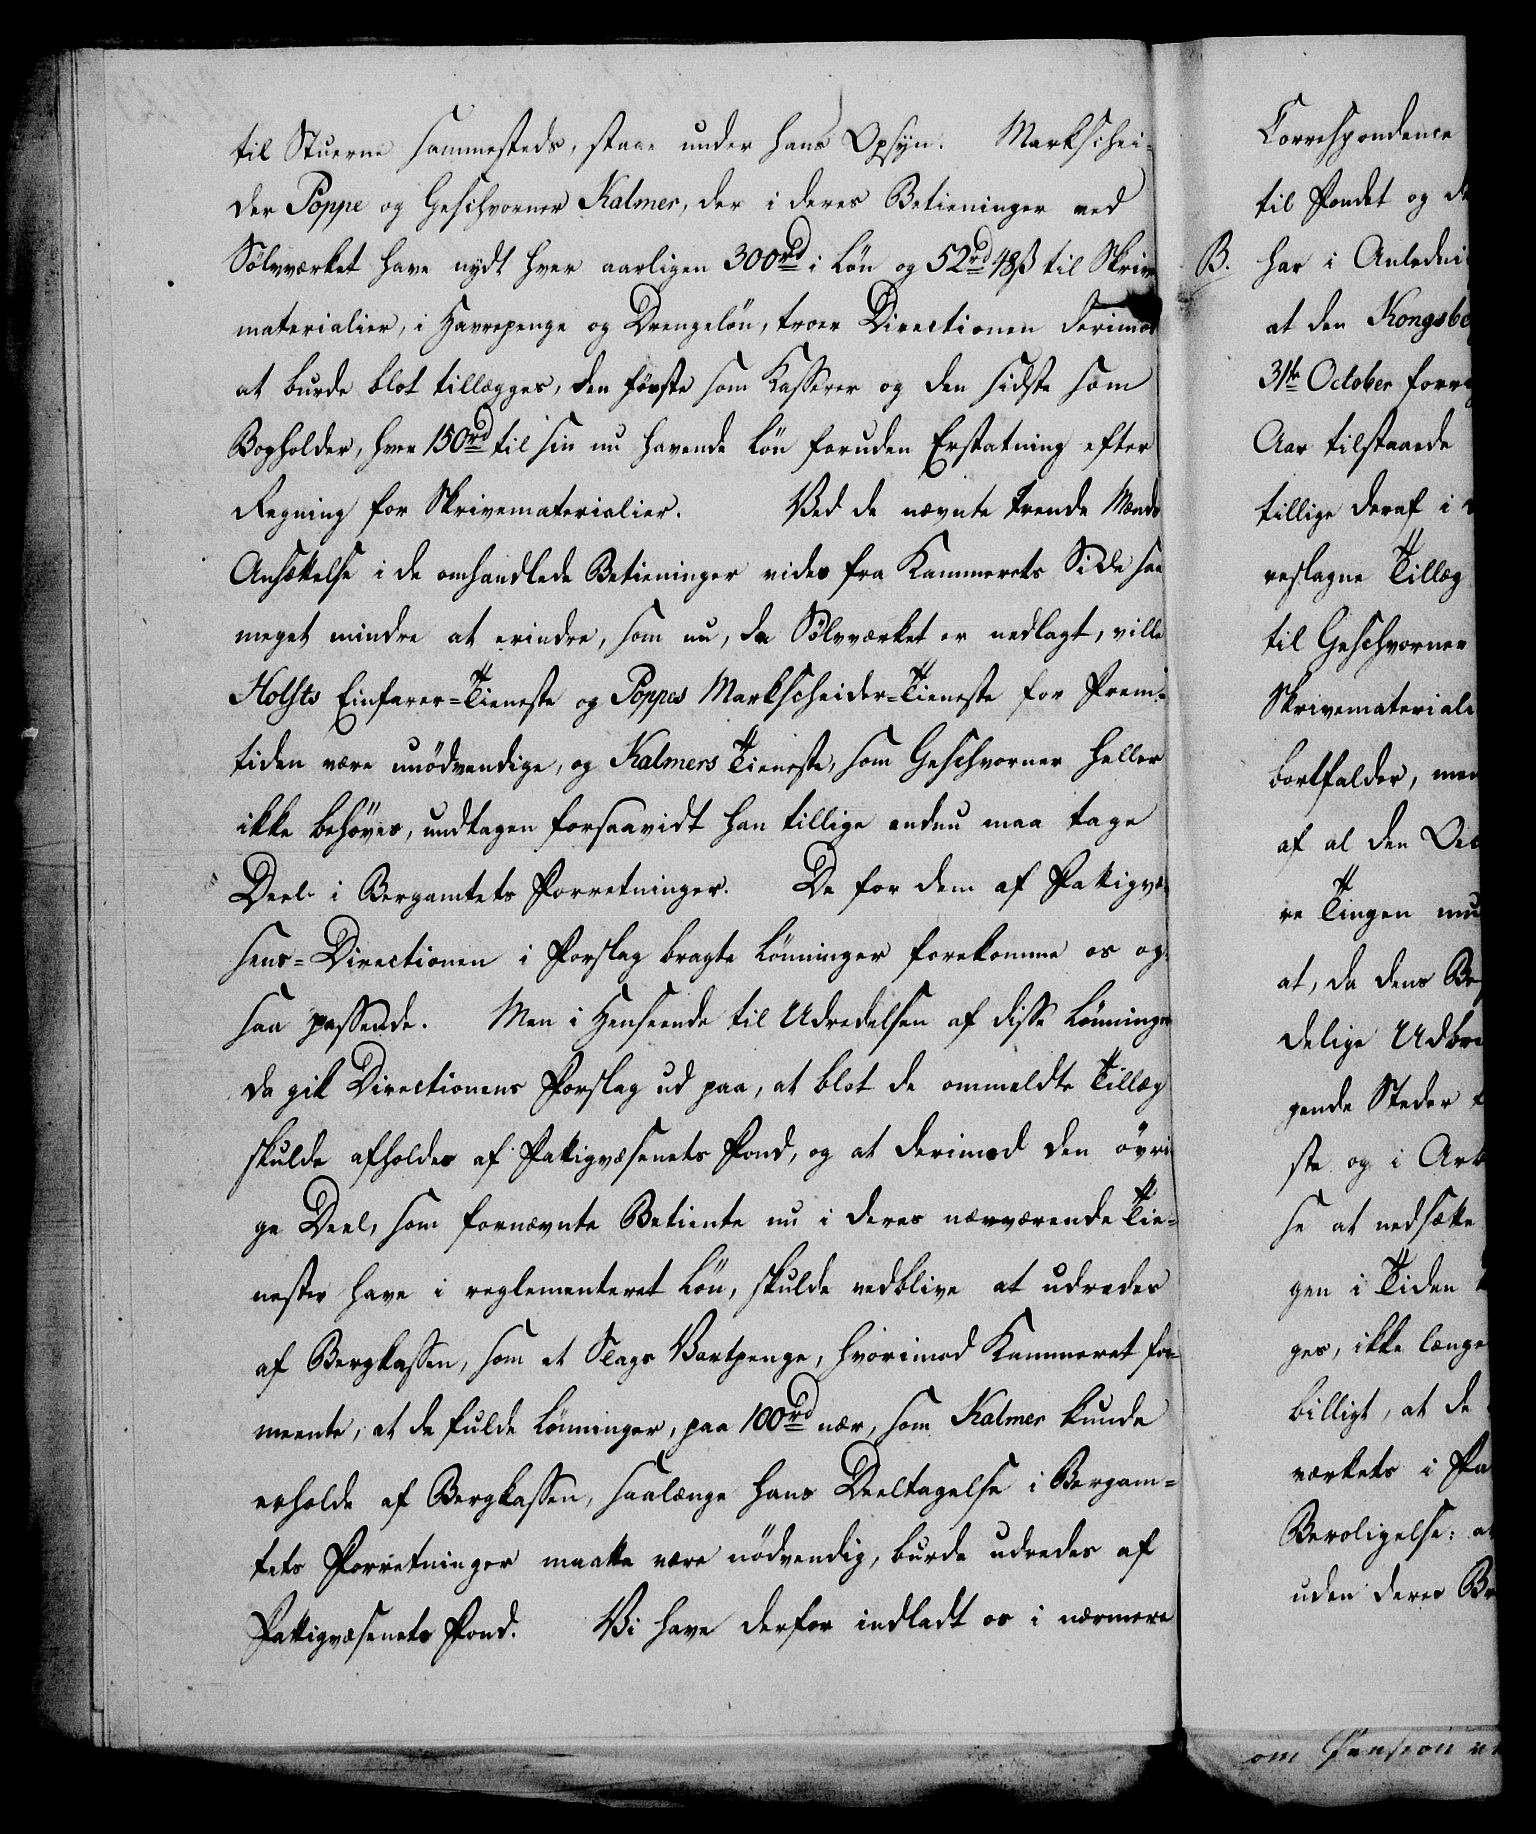 til Stuerne sammesteds, staae under hans Opsyn. Markschei-
der Poppe og Geschvorner Kalmer, der i deres Betieninger ved
Sölvværket have nydt hver aarligen 300rd i Løn og 52rd 48ß til Skrive
materialier, i Havrepenge og Drengeløn, troer Directionen derimod
at burde blot tillægges, den første som Kasserer og den sidste som
Bogholder, hver 150rd til sin nu havende Løn foruden Erstatning efter
Regning for Skrivematerialier. Ved de nævnte trende Mænds
Ansættelse i de omhandlede Betieninger vides fra Kammerets Side saa
meget mindre at erindre, som nu, da Sölvværket er nedlagt, ville
Holsts Einfarer-Tieneste og Poppes Markscheider-Tieneste for Frem-
tiden være unödvendige, og Kalmers Tieneste, som Geschvorner heller
ikke behöves, undtagen forsaavidt han tillige endnu maa tage
Deel i Bergamtets Forretninger. De for dem af Fattigvæ-
sens-Directionen i Forslag bragte Lönninger forekomme os og-
saa passende. Men i Henseende til Udredelsen af disse Lönninger
da gik Directionens Forslag ud paa, at blot de ommeldte Tillæg
skulde afholdes af Fattigvæsenets Fond, og at derimod den övri-
ge Deel, som fornævnte Betiente nu i deres nærværende Tie-
nester have i reglementeret Løn, skulde vedblive at udredes
af Bergkassen, som et Slags Vartpenge, hvorimod Kammeret for-
meente, at de fulde Lönninger, paa 100rd nær, som Kalmer kunde
erholde af Bergkassen, saalænge hans Deeltagelse i Bergam-
tets Forretninger maatte være nödvendig, burde udredes af
Fattigvæsenets Fond. Vi have derfor indladt os i nærmere
Correspondence
til Fondet og
B. har i Anledni
at den Kongsbe
31te October forrig
Aar tilstaaede
tillige deraf i
reslagne Tillæg
til Geschvorner
Skrivematerial
bortfalder, men
af al den
re Tingen
at, da dens
delige
gende Steder
ste og i
se at nedsætte
gen i Tiden
ges, ikke længe
billigt, at de
værkets i Fa
Beroligelse: at
uden deres
om Pension